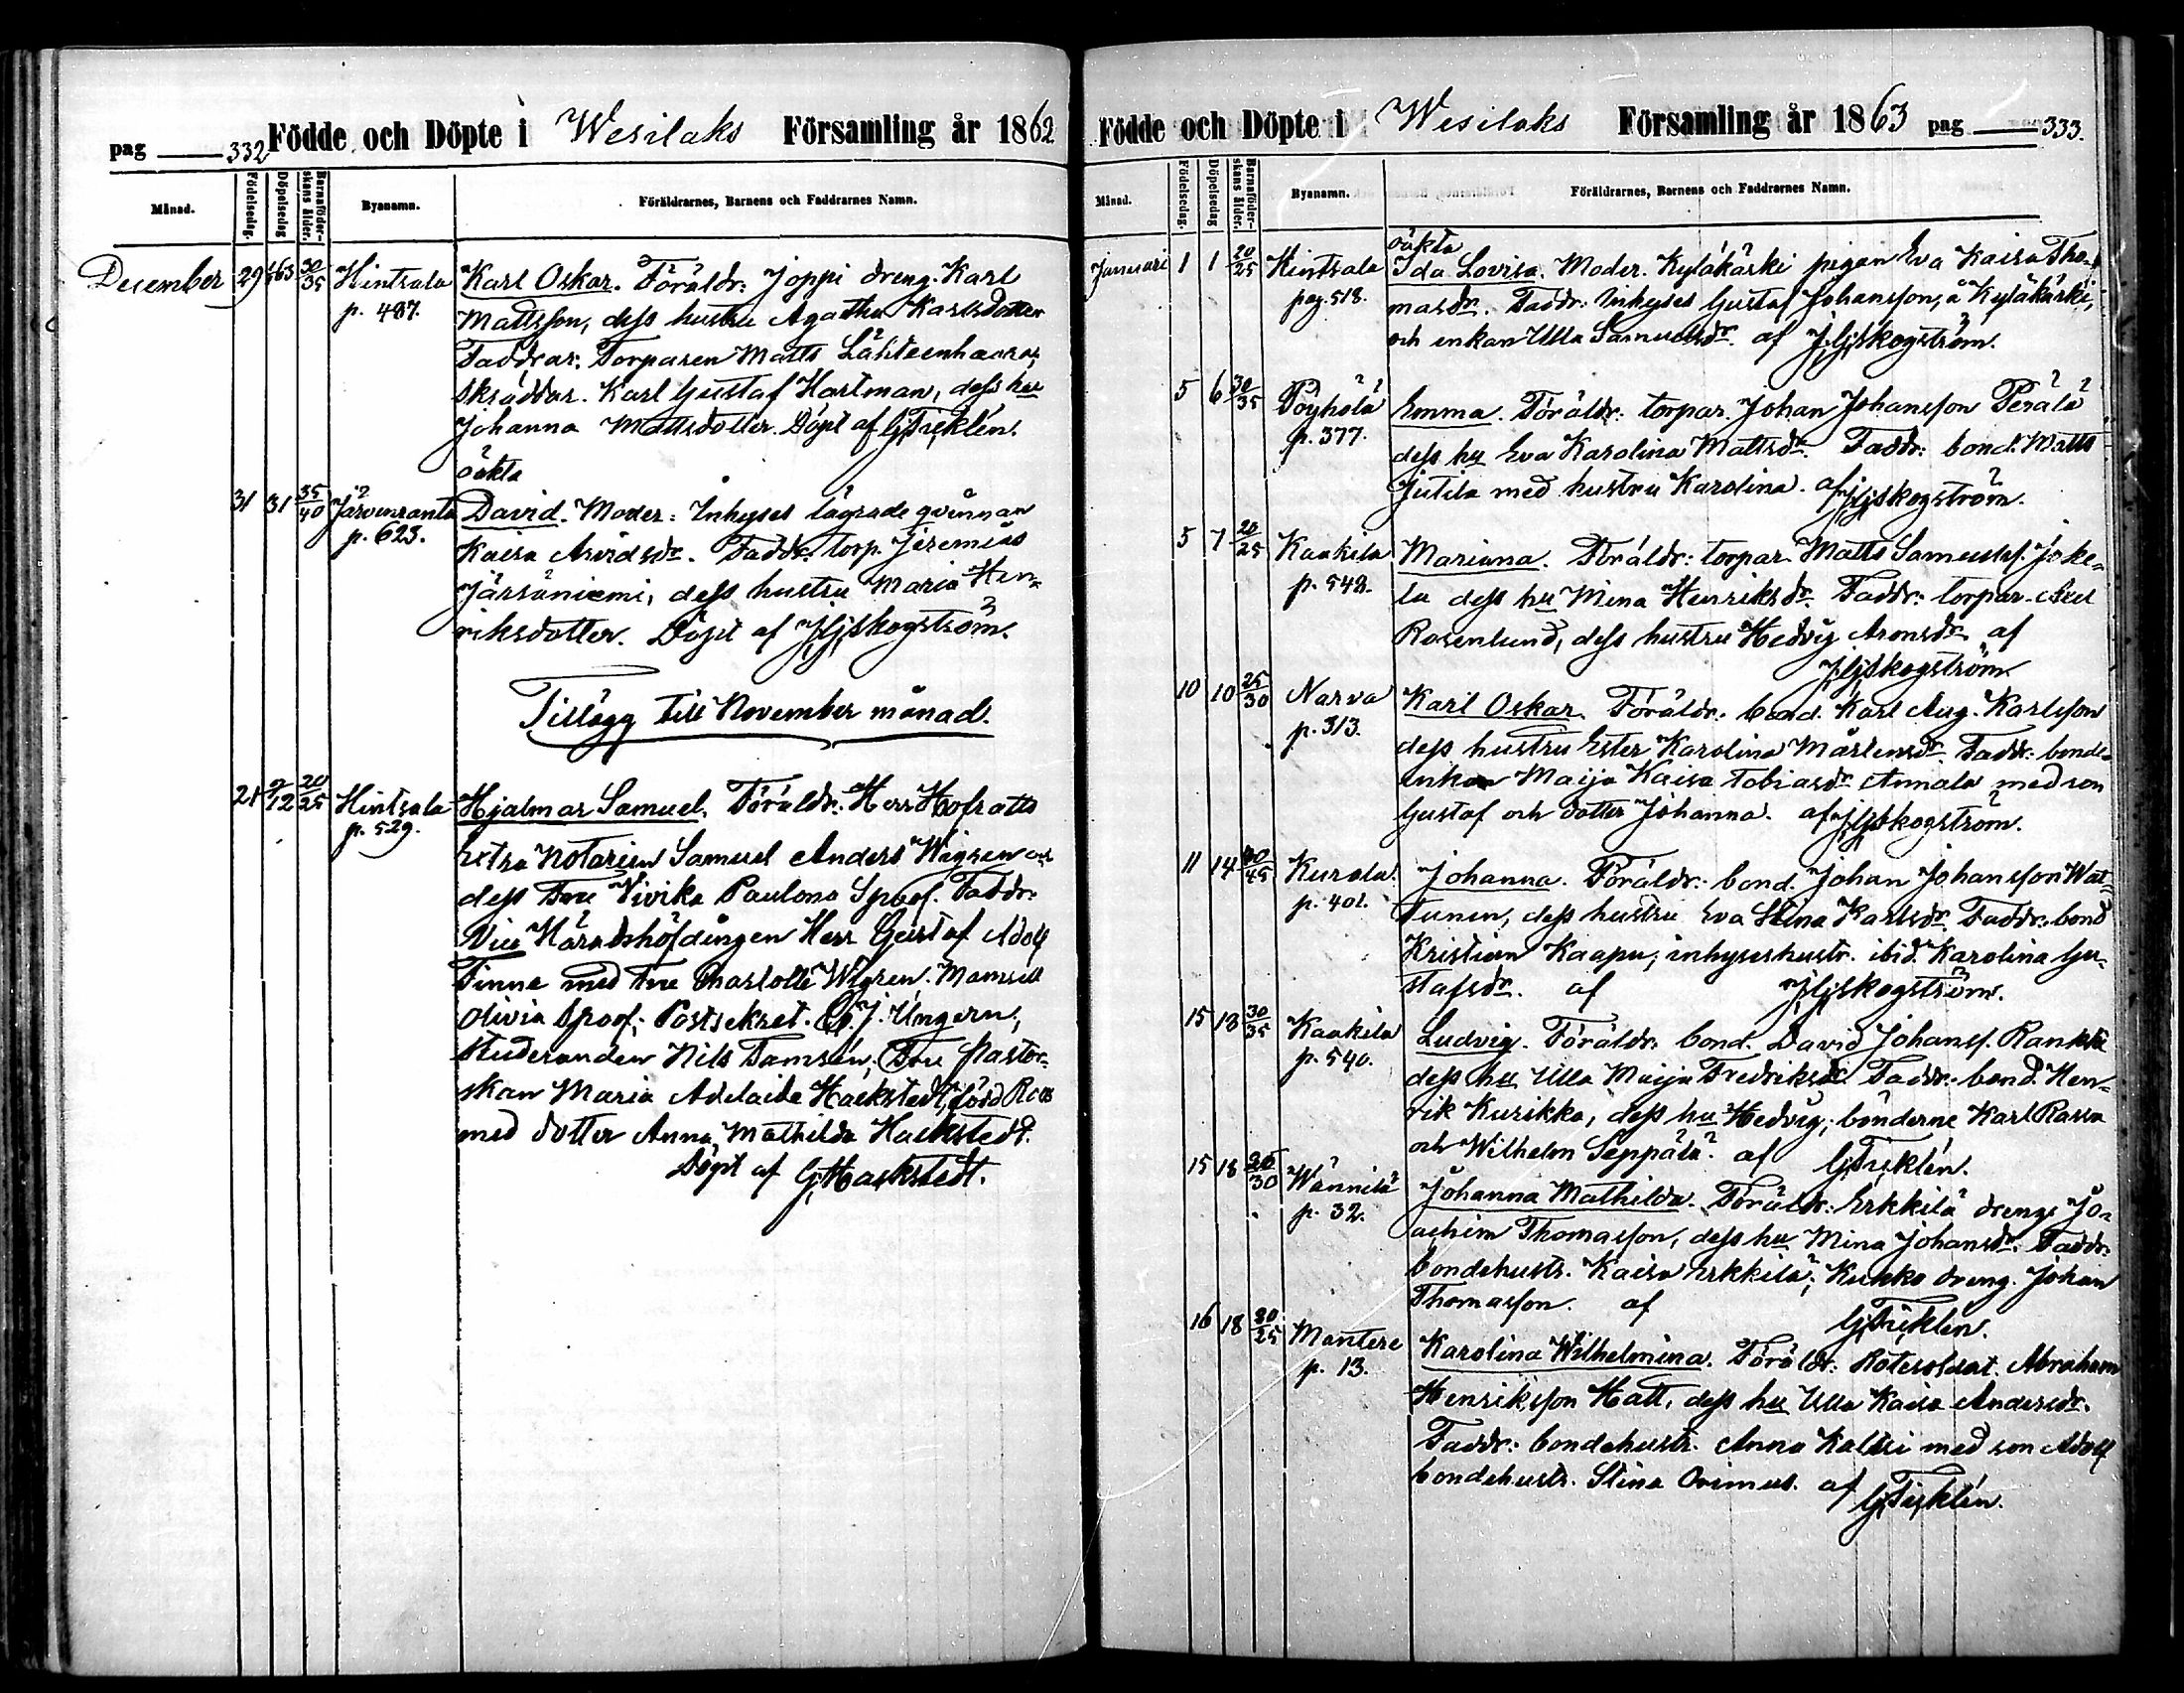 pag 332 Födde och Döpte i Wesilaks Församling år 1862
Månad. Födelsedag. Döpelsedag Barnaföder-skans ålder. Byanamn. Föräldrarnes, Barnens och Faddrarnes Namn.
December 29 30/35 Hintsala Karl Oskar. Föräldr: Joppi dreng. Karl
p. 487. Mattsson, dess hustru Agatha Karlsdotter
Faddrar: Torparen Matts
skräddar. Karl Gustaf Hartman, dess hu
Johanna Mattsdotter. Döpt af G. Fr. Eklén.
oäkta
31 31 35/40 Järvenranta David. Moder: Inhyses lägrade qvinnan
p. 623. Kaisa Arvidsdr. Faddr: torp. Jeremias
Järsäniemi, dess hustru Maria Hen-
riksdotter. Döpt af J. Hj. Skogström.
Tillägg till November månad.
21 2/12 20/25 Hintsala Hjalmar Samuel. Föräldr: Herr Hofrätts
p. 529. Extra Notarien Samuel Anders Wigren och
dess Fru Vivika Paulona Spoof. Faddr:
Vice Häradshöfdingen Herr Gustaf Adolf
Finne med Fru Charlotte Wigren. Mamsell
Olivia Spoof; Postsekret. J. Ungern;
Studeranden Nils Tamsén; Fru Pastor-
skan Maria Adelaide Hackstedt, född Roos
med dotter Anna Mathilda Hackstedt.
Döpt af G. Hackstedt.
Födde och Döpte i Wesilaks Församling år 1863 pag 333.
Månad. Födelsedag. Döpelsedag Barnaföder-skans ålder. Byanamn. Föräldrarnes, Barnens och Faddrarnes Namn.
oäkta
Januari 1 1 20/25 Hintsala Ida Lovisa. Moder. Kyläkärki pigan Eva Kaisa Tho-
pag. 518. masdr. Faddr: Inhyses Gustaf Johansson, å Kyläkärki,
och enkan Ulla Samuelsdr. af J. Hj. Skogström.
5 6 30/35 Pöyhölä Emma. Föräldr: torpar. Johan Johansson Perälä
p. 377. dess hu Eva Karolina Mattsdr. Faddr: bond. Matts
Jutila med hustru Karolina. af J. Hj. Skogström.
5 7 20/25 Kaakila Marianna. Föräldr: torpar. Matts Samuelss. Joke-
p. 548. la dess hu Mina Henriksdr. Faddr: torpar. Axel
Rosenlund, dess hustru Hedvig Aronsdr. af
J. Hj. Skogström
10 10 25/30 Narva Karl Oskar. Föräldr. bond. Karl Aug. Karlsson
p. 313. dess hustru Ester Karolina Mårtensdr. Faddr: bonde-
enkan Maija Kaisa Tobiasdr. Annala med son
Gustaf och dotter Johanna. af J. Hj. Skogström.
11 14 40/45 Kurala Johanna. Föräldr: bond. Johan Johansson Wat-
p. 401. tunen, dess hustru Eva Stina Karlsdr. Faddr: bond
Kristian Kaapu; inhyseshustr. ibid. Karolina Gu-
stafsdr. af J. Hj. Skogström.
15 18 30/35 Kaakila Ludvig. Föräldr. bond. David Johanss. Rankki
p. 540. dess hu Ulla Maija Fredriksdr. Faddr: bond. Hen-
rik Kurikka, dess hu Hedvig; bönderne Karl Rassa
och Wilhelm Seppälä. af G. Fr. Eklén.
15 18 25/30 Wännilä Johanna Mathilda. Föräldr: Erkkilä dreng Jo-
p. 32. achim Thomasson, dess hu Mina Johansdr. Faddr:
bondehustr. Kaisa Erkkilä; Kukko dreng. Johan
Thomasson. af G. Fr. Eklén.
16 18 20/25 Mantere Karolina Wilhelmina. Föräldr: Rotesoldat. Abraham
p. 13. Henriksson Hatt, dess hu Ulla Kaisa Andersdr.
Faddr: bondehustr. Anna Kaltsi med son Adolf
bondehustr. Stina Orimus. af G. Fr. Eklén.